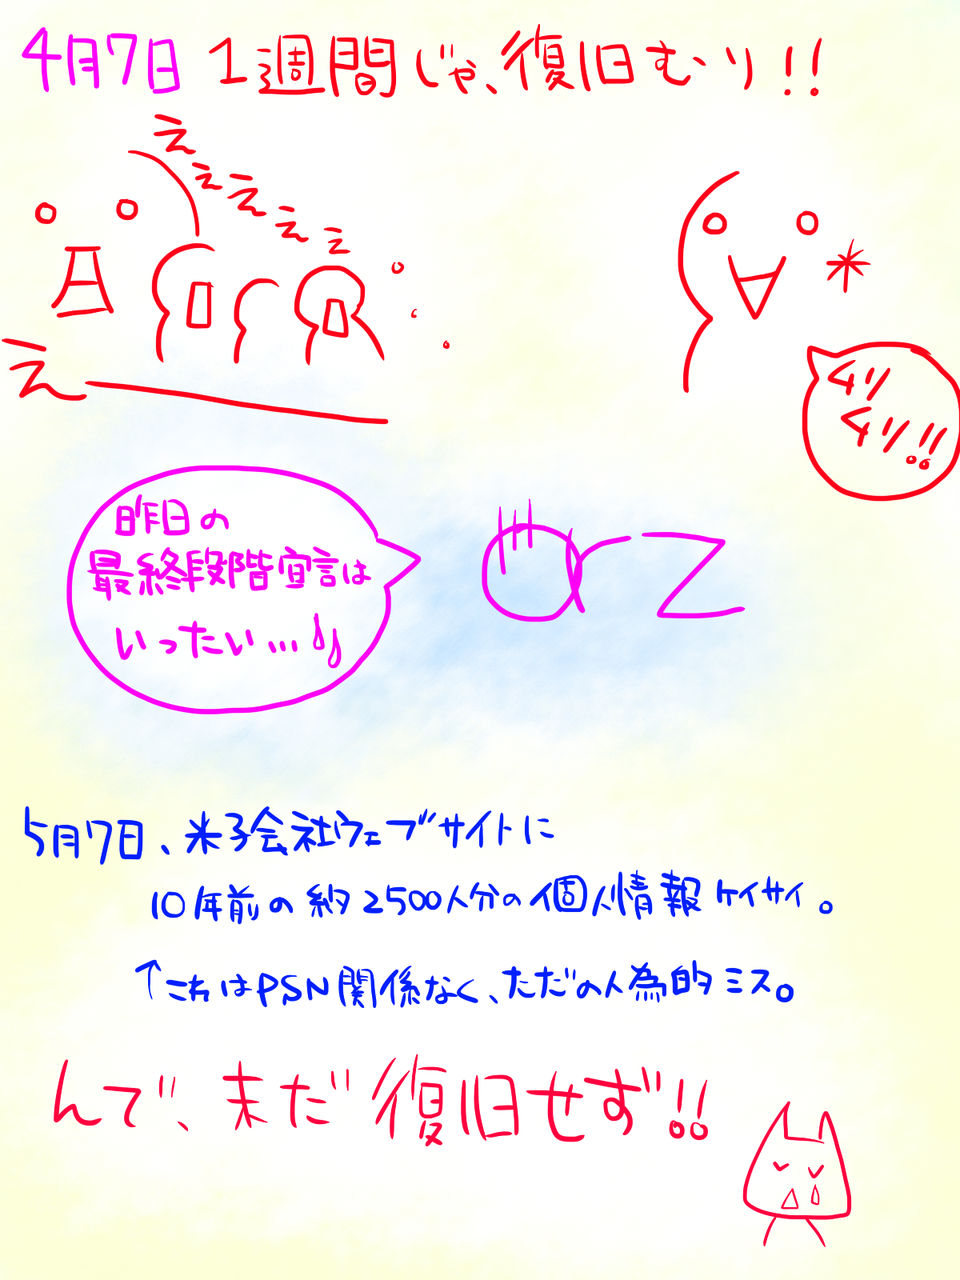 4月7日 1週間じゃ、復旧むり!!
ええええぇ
え———
ムリ
ムリ!!
昨日の
最終段階宣言は
いったい…
orz
5月7日、米子会社ウェブサイトに
10年前の約2500人分の個人情報ケイサイ。
↑これはPSN関係なく、ただの人為的ミス。
んで、未だ復旧せず!!